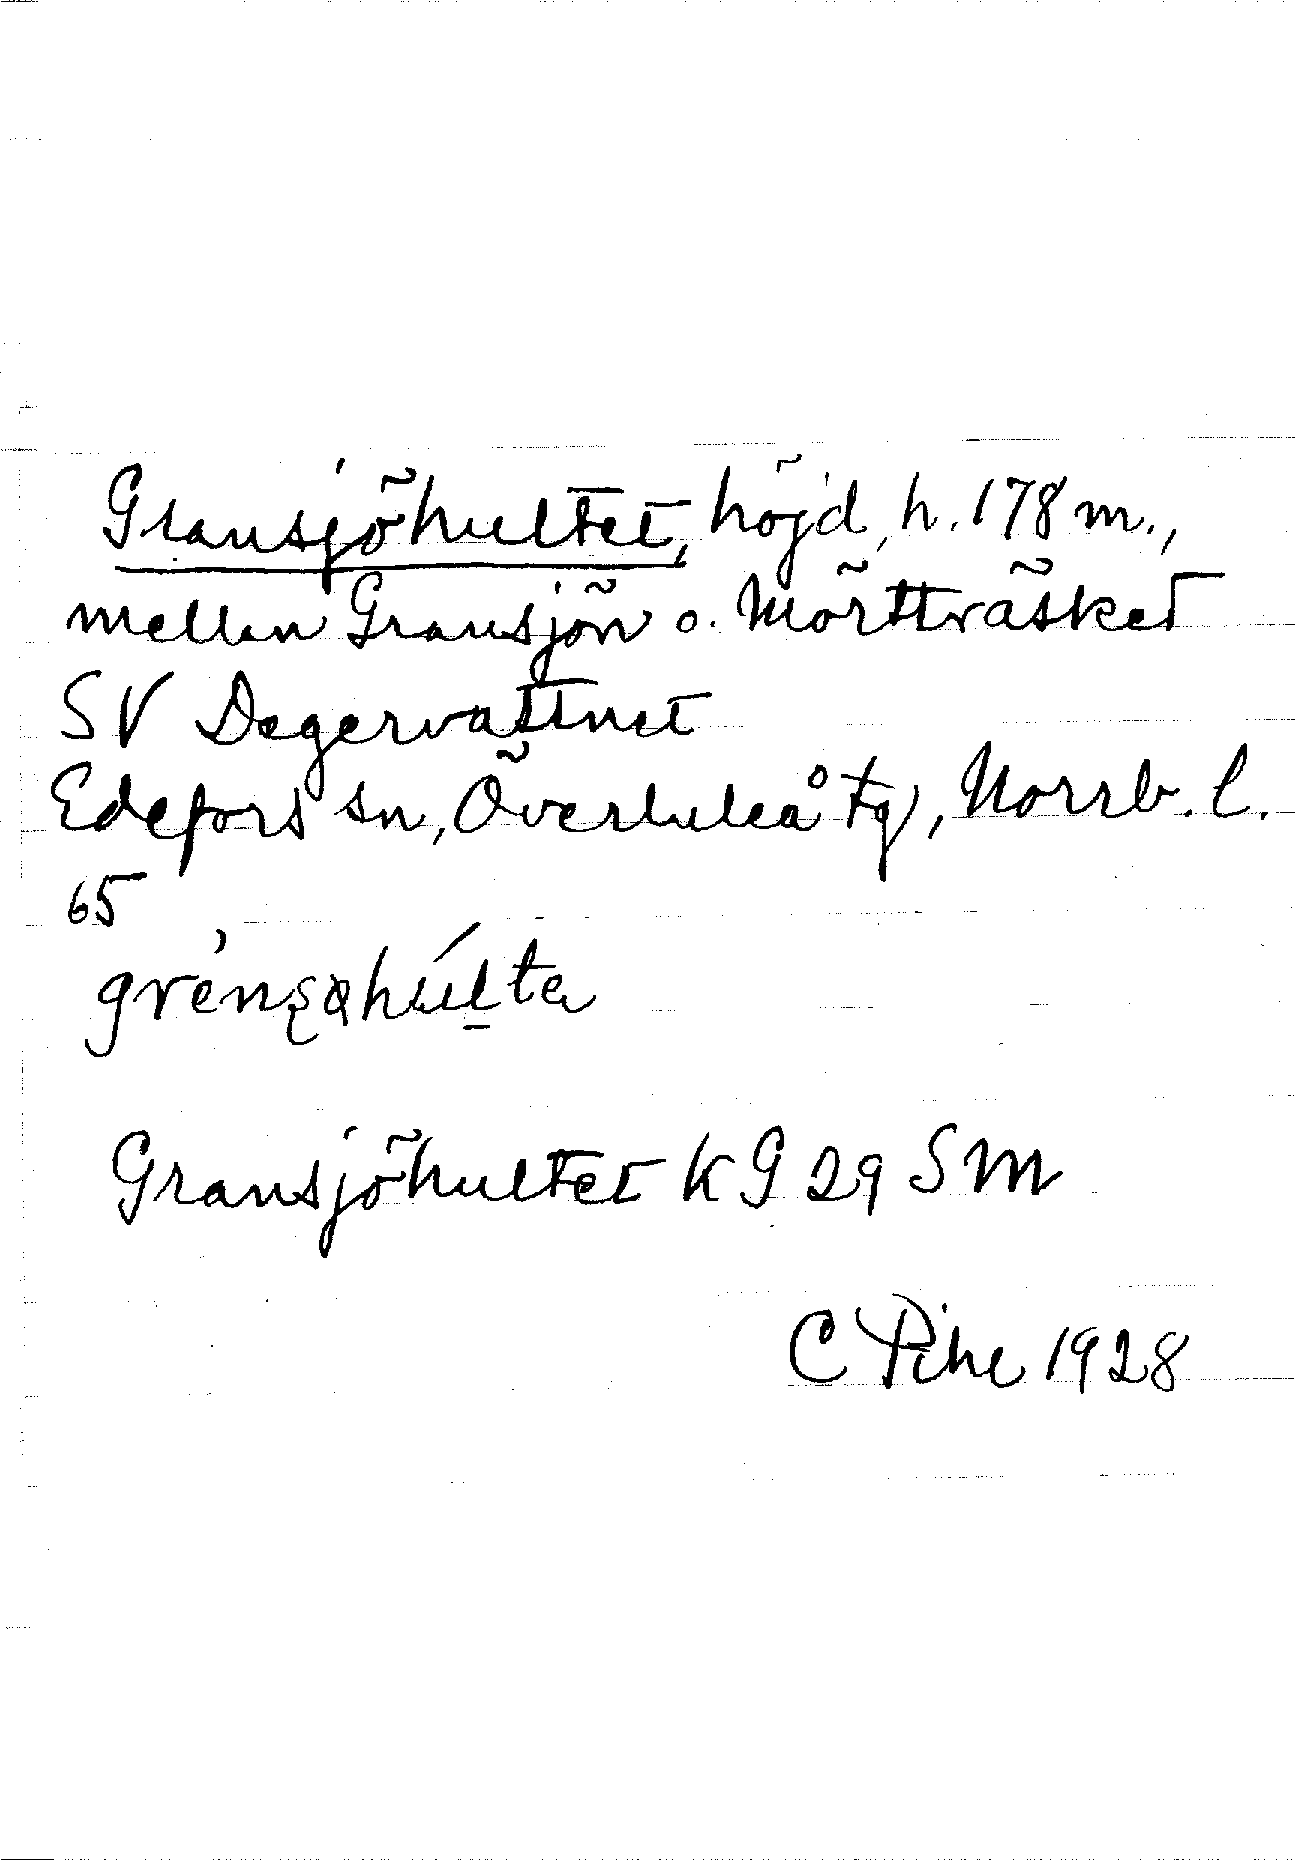 Gransjöhultet, höjd, h. 178 m.,
mellan Gransjön o. Mörtträsket
SV Degervattnet
Edefors sn, Överluleå tg, Norrb. l.
65
Gransjöhultet KG 29 SM
C Pihe 1928